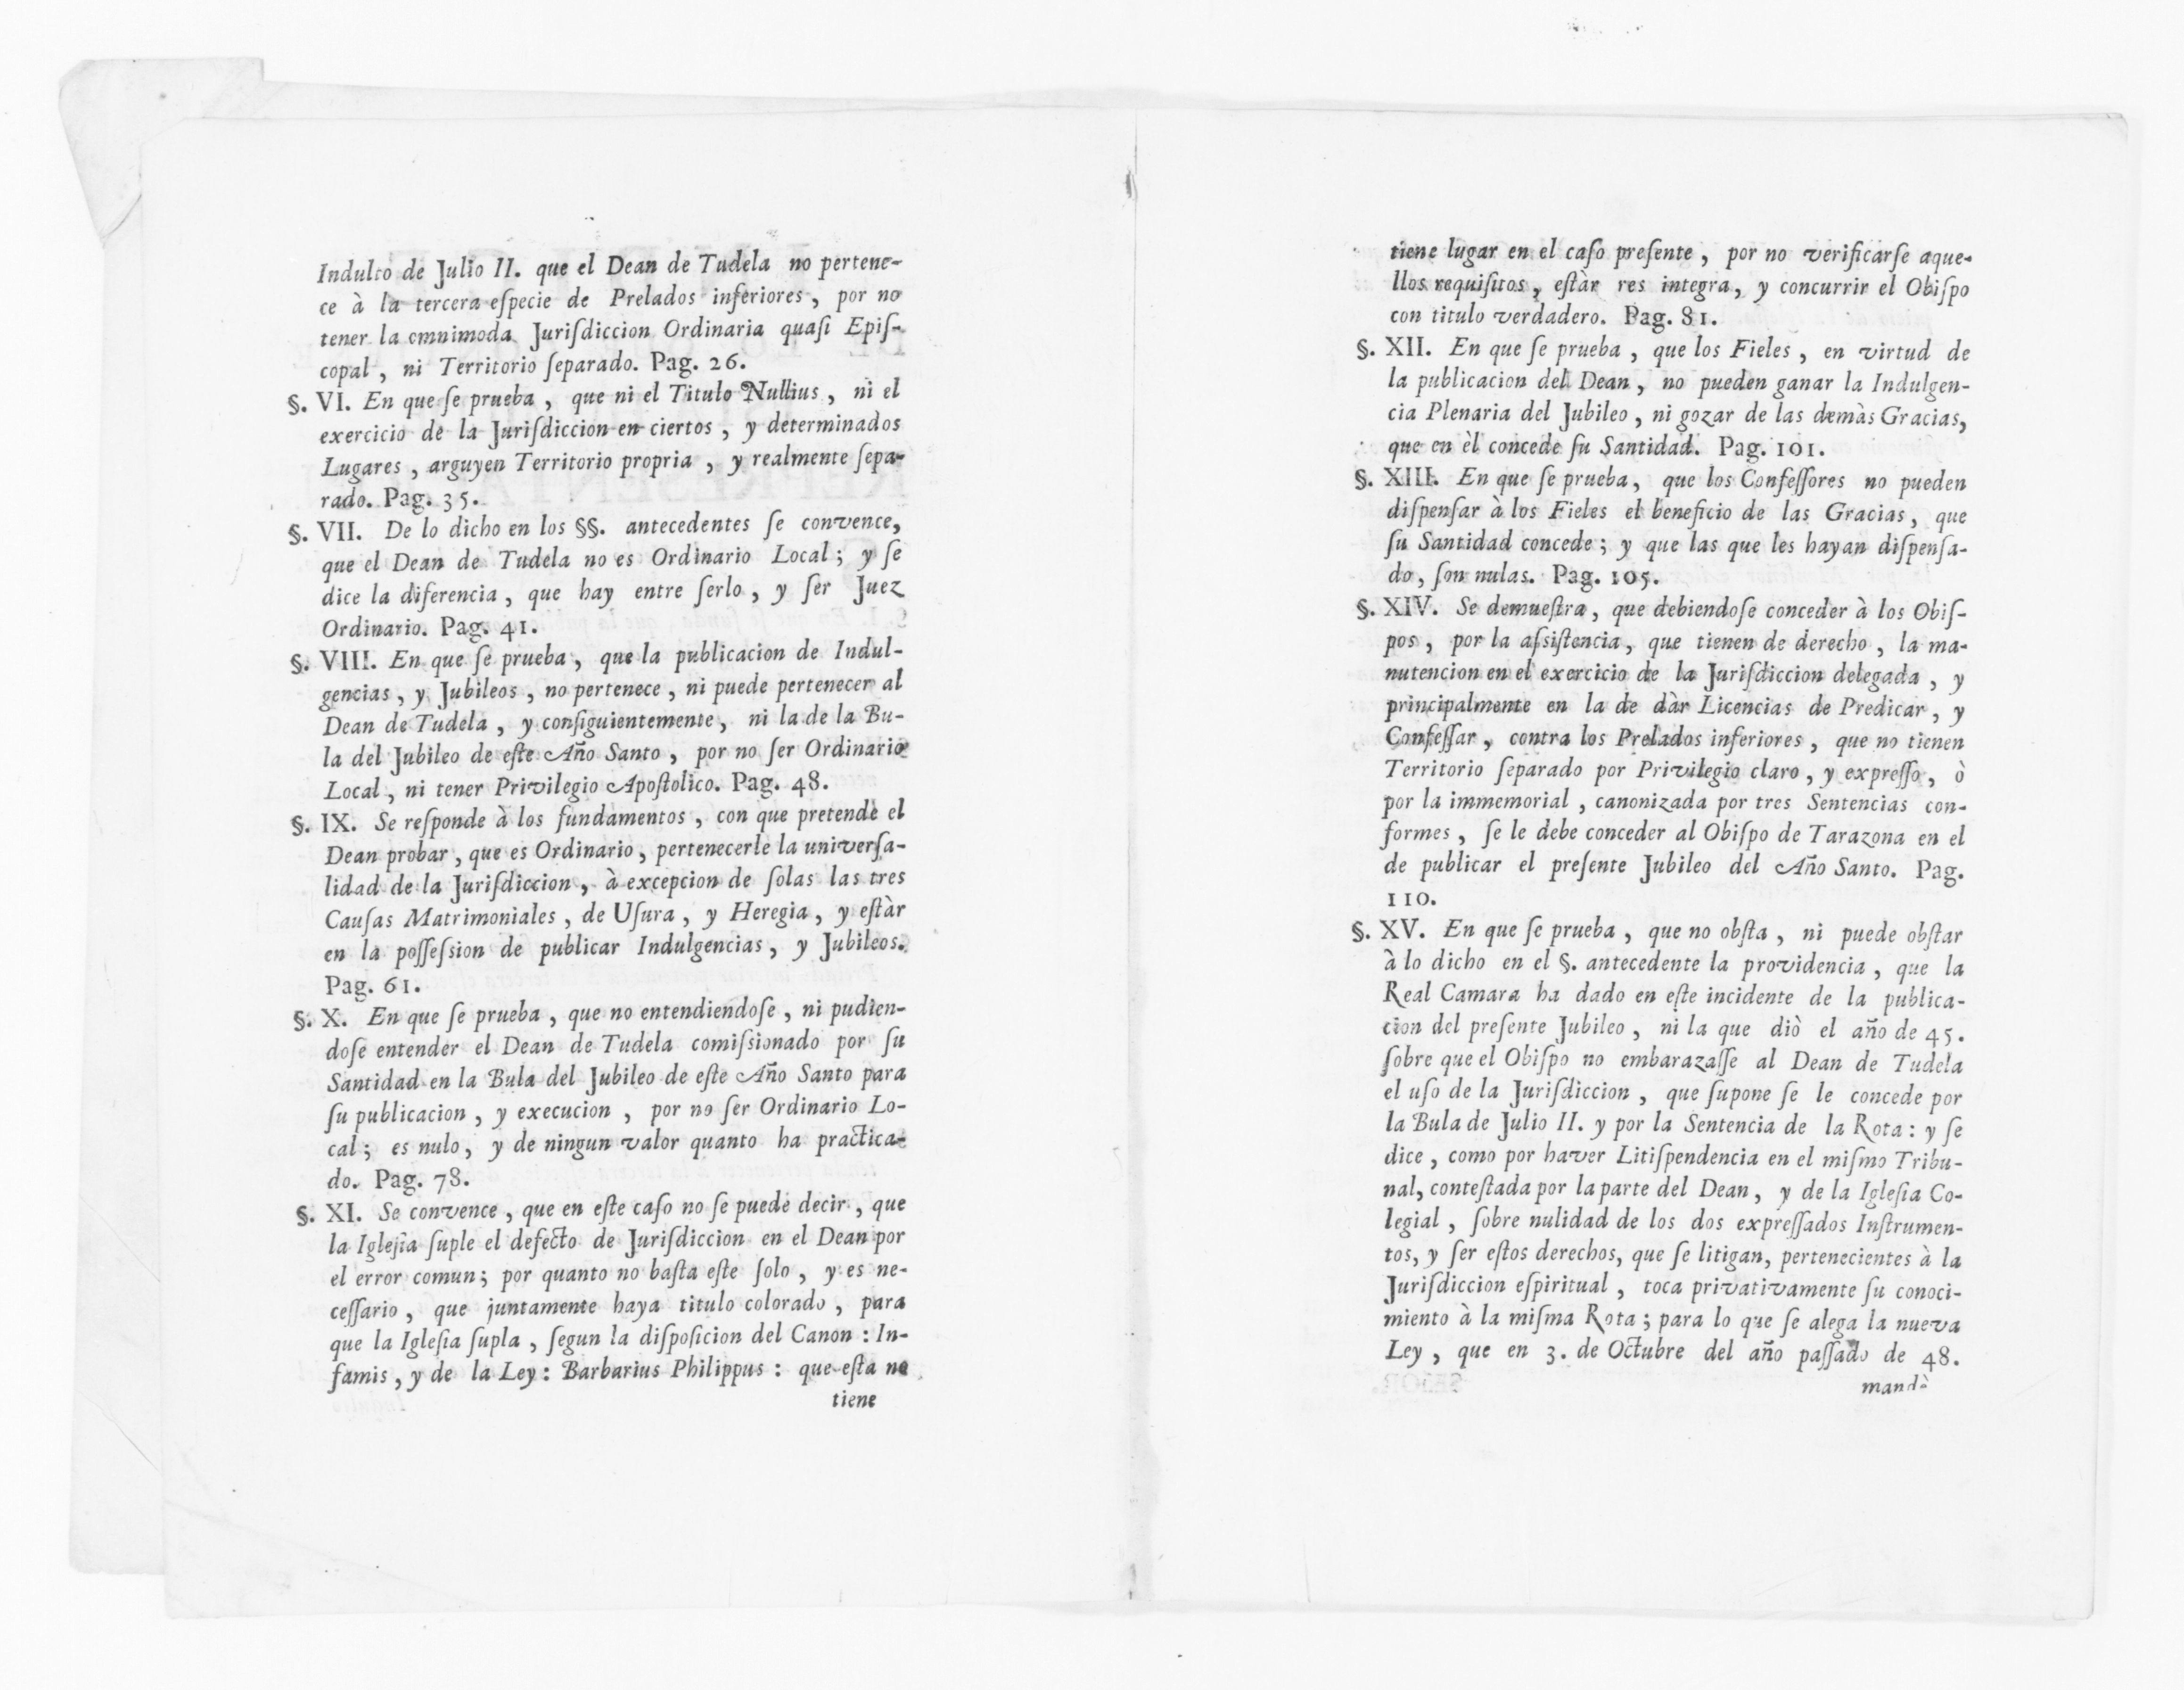 Indulto de Julio II. que el Dean de Tudela no pertene-
ce à la tercera eſpecie de Prelados inferiores, por no
tener la omnimoda Juriſdiccion Ordinaria quaſi Epiſ-
copal, ni Territorio ſeparado. Pag. 26.
§. VI. En que ſe prueba, que ni el Titulo Nullius, ni el
exercicio de la Juriſdiccion en ciertos, y determinados
Lugares, arguyen Territorio propria, y realmente ſepa-
rado. Pag. 35.
§. VII. De lo dicho en los §§. antecedentes ſe convence,
que el Dean de Tudela no es Ordinario Local; y ſe
dice la diferencia, que hay entre ſerlo, y ſer Juez
Ordinario. Pag. 41.
§. VIII. En que ſe prueba, que la publicacion de Indul-
gencias, y Jubileos, no pertenece, ni puede pertenecer al
Dean de Tudela, y conſiguientemente, ni la de la Bu-
la del Jubileo de eſte Año Santo, por no ſer Ordinario
Local, ni tener Privilegio Apoſtolico. Pag. 48.
§. IX. Se reſponde à los fundamentos, con que pretende el
Dean probar, que es Ordinario, pertenecerle la univerſa-
lidad de la Juriſdiccion, à excepcion de ſolas las tres
Cauſas Matrimoniales, de Uſura, y Heregia, y eſtàr
en la poſſeſsion de publicar Indulgencias, y Jubileos.
Pag. 61.
§. X. En que ſe prueba, que no entendiendoſe, ni pudien-
doſe entender el Dean de Tudela comiſsionado por ſu
Santidad en la Bula del Jubileo de eſte Año Santo para
ſu publicacion, y execucion, por no ſer Ordinario Lo-
cal; es nulo, y de ningun valor quanto ha practica-
do. Pag. 78.
§. XI. Se convence, que en eſte caſo no ſe puede decir, que
la Igleſia ſuple el defecto de Juriſdiccion en el Dean por
el error comun; por quanto no baſta eſte ſolo, y es ne-
ceſſario, que juntamente haya titulo colorado, para
que la Igleſia ſupla, ſegun la diſpoſicion del Canon: In-
famis, y de la Ley: Barbarius Philippus: que eſta no
tiene
tiene lugar en el caſo preſente, por no verificarſe aque-
llos requiſitos, eſtàr res integra, y concurrir el Obiſpo
con titulo verdadero. Pag. 81.
§. XII. En que ſe prueba, que los Fieles, en virtud de
la publicacion del Dean, no pueden ganar la Indulgen-
cia Plenaria del Jubileo, ni gozar de las demàs Gracias,
que en èl concede ſu Santidad. Pag. 101.
§. XIII. En que ſe prueba, que los Confeſſores no pueden
diſpenſar à los Fieles el beneficio de las Gracias, que
ſu Santidad concede; y que las que les hayan diſpenſa-
do, ſon nulas. Pag. 105.
§. XIV. Se demueſtra, que debiendoſe conceder à los Obiſ-
pos, por la aſsiſtencia, que tienen de derecho, la ma-
nutencion en el exercicio de la Juriſdiccion delegada, y
principalmente en la de dàr Licencias de Predicar, y
Confeſſar, contra los Prelados inferiores, que no tienen
Territorio ſeparado por Privilegio claro, y expreſſo, ò
por la immemorial, canonizada por tres Sentencias con-
formes, ſe le debe conceder al Obiſpo de Tarazona en el
de publicar el preſente Jubileo del Año Santo. Pag.
110.
§. XV. En que ſe prueba, que no obſta, ni puede obſtar
à lo dicho en el §. antecedente la providencia, que la
Real Camara ha dado en eſte incidente de la publica-
cion del preſente Jubileo, ni la que diò el año de 45.
ſobre que el Obiſpo no embarazaſſe al Dean de Tudela
el uſo de la Juriſdiccion, que ſupone ſe le concede por
la Bula de Julio II. y por la Sentencia de la Rota: y ſe
dice, como por haver Litiſpendencia en el miſmo Tribu-
nal, conteſtada por la parte del Dean, y de la Igleſia Co-
legial, ſobre nulidad de los dos expreſſados Inſtrumen-
tos, y ſer eſtos derechos, que ſe litigan, pertenecientes à la
Juriſdiccion eſpiritual, toca privativamente ſu conoci-
miento à la miſma Rota; para lo que ſe alega la nueva
Ley, que en 3. de Octubre del año paſſado de 48.
mandò